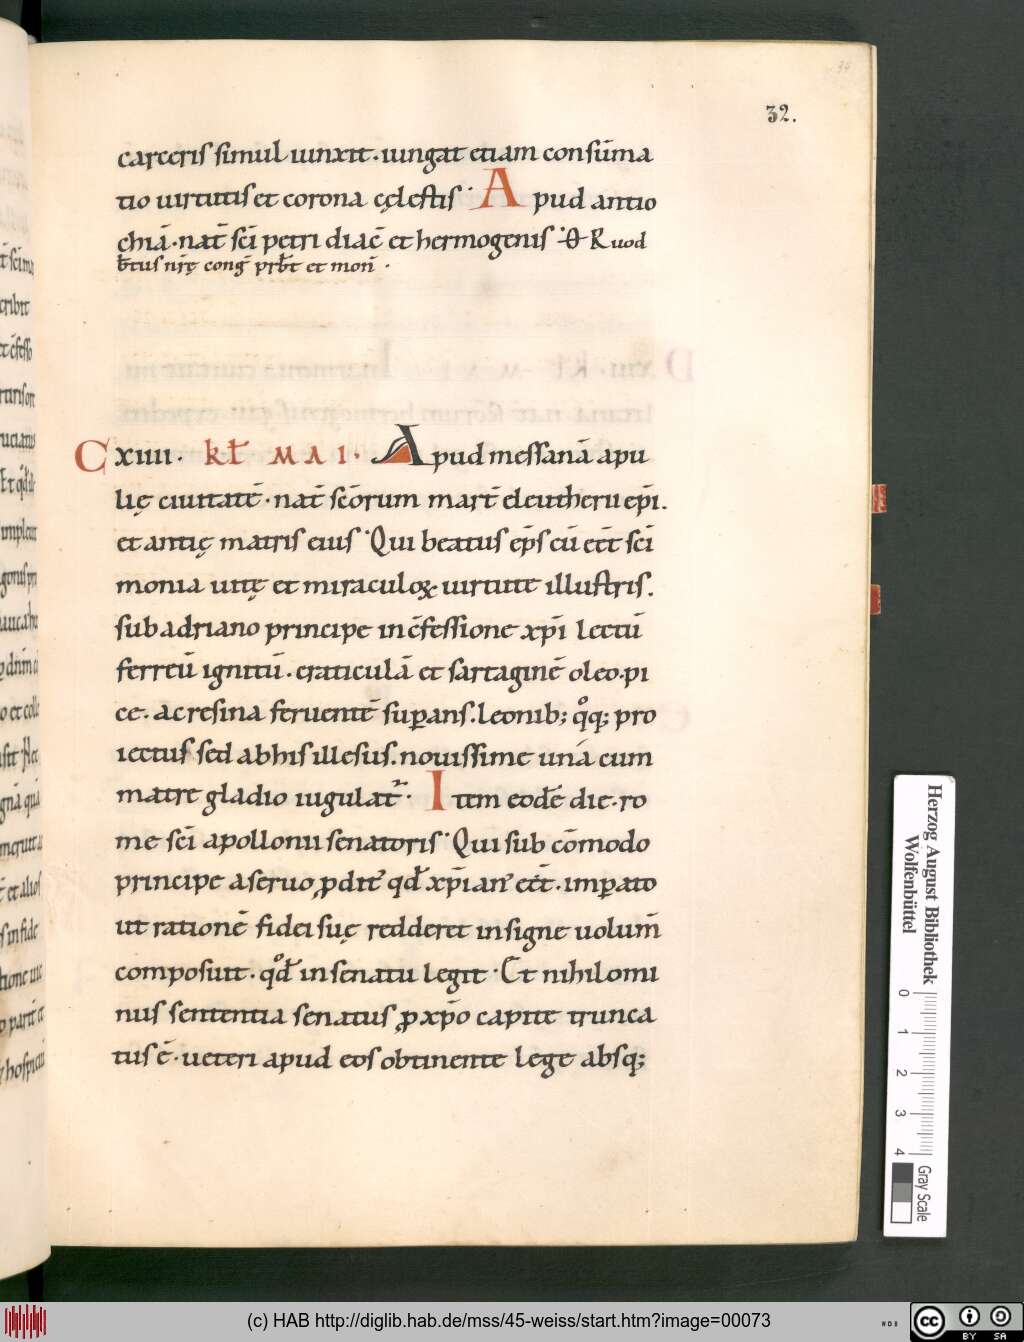 34
32.
carceris simul iunxit. iungat etiam consūma
tio uirtutis et corona cęlestis. Apud antio
chiā. nat̄ sc̄i petri diac̄ et hermogenis. Ruod
b̄tus nr̄ę cong̅ prb̄t et mon̄.
C xiiii. kƚ mai. Apud messanā apu
lię ciuitatē. nat̄ sc̄orum mart̄ eleutherii ep̄i.
et antię matris eius. Qui beatus ep̄s cū eēt sc̄i
monia uitę et miraculoꝝ uirtute illustris.
sub adriano principe in c̄fessione xp̄i lectū
ferreū ignitū. craticulā et sartaginē oleo. pi
ce. ac resina feruentē suꝑans. leonib; qͦq; pro
iectus sed ab his illesus. nouissime unā cum
matre gladio iugulat᷑. Item eodē die. ro
me sc̄i apollonii senatoris. Qui sub cōmodo
principe a seruo ꝓdit᷒ qđ xp̄ian᷒ eēt. imꝑato
ut rationē fidei suę redderet insigne uolum̄
composuit. qͦđ in senatu legit. Et nihilomi
nus sententia senatus ꝓ xp̄o capite trunca
tus ē. ueteri apud eos obtinente lege absq;
Herzog August Bibliothek
Wolfenbüttel
0 1 2 3 4
Gray Scale
(c) HAB http://diglib.hab.de/mss/45-weiss/start.htm?image=00073
WDB
cc BY SA